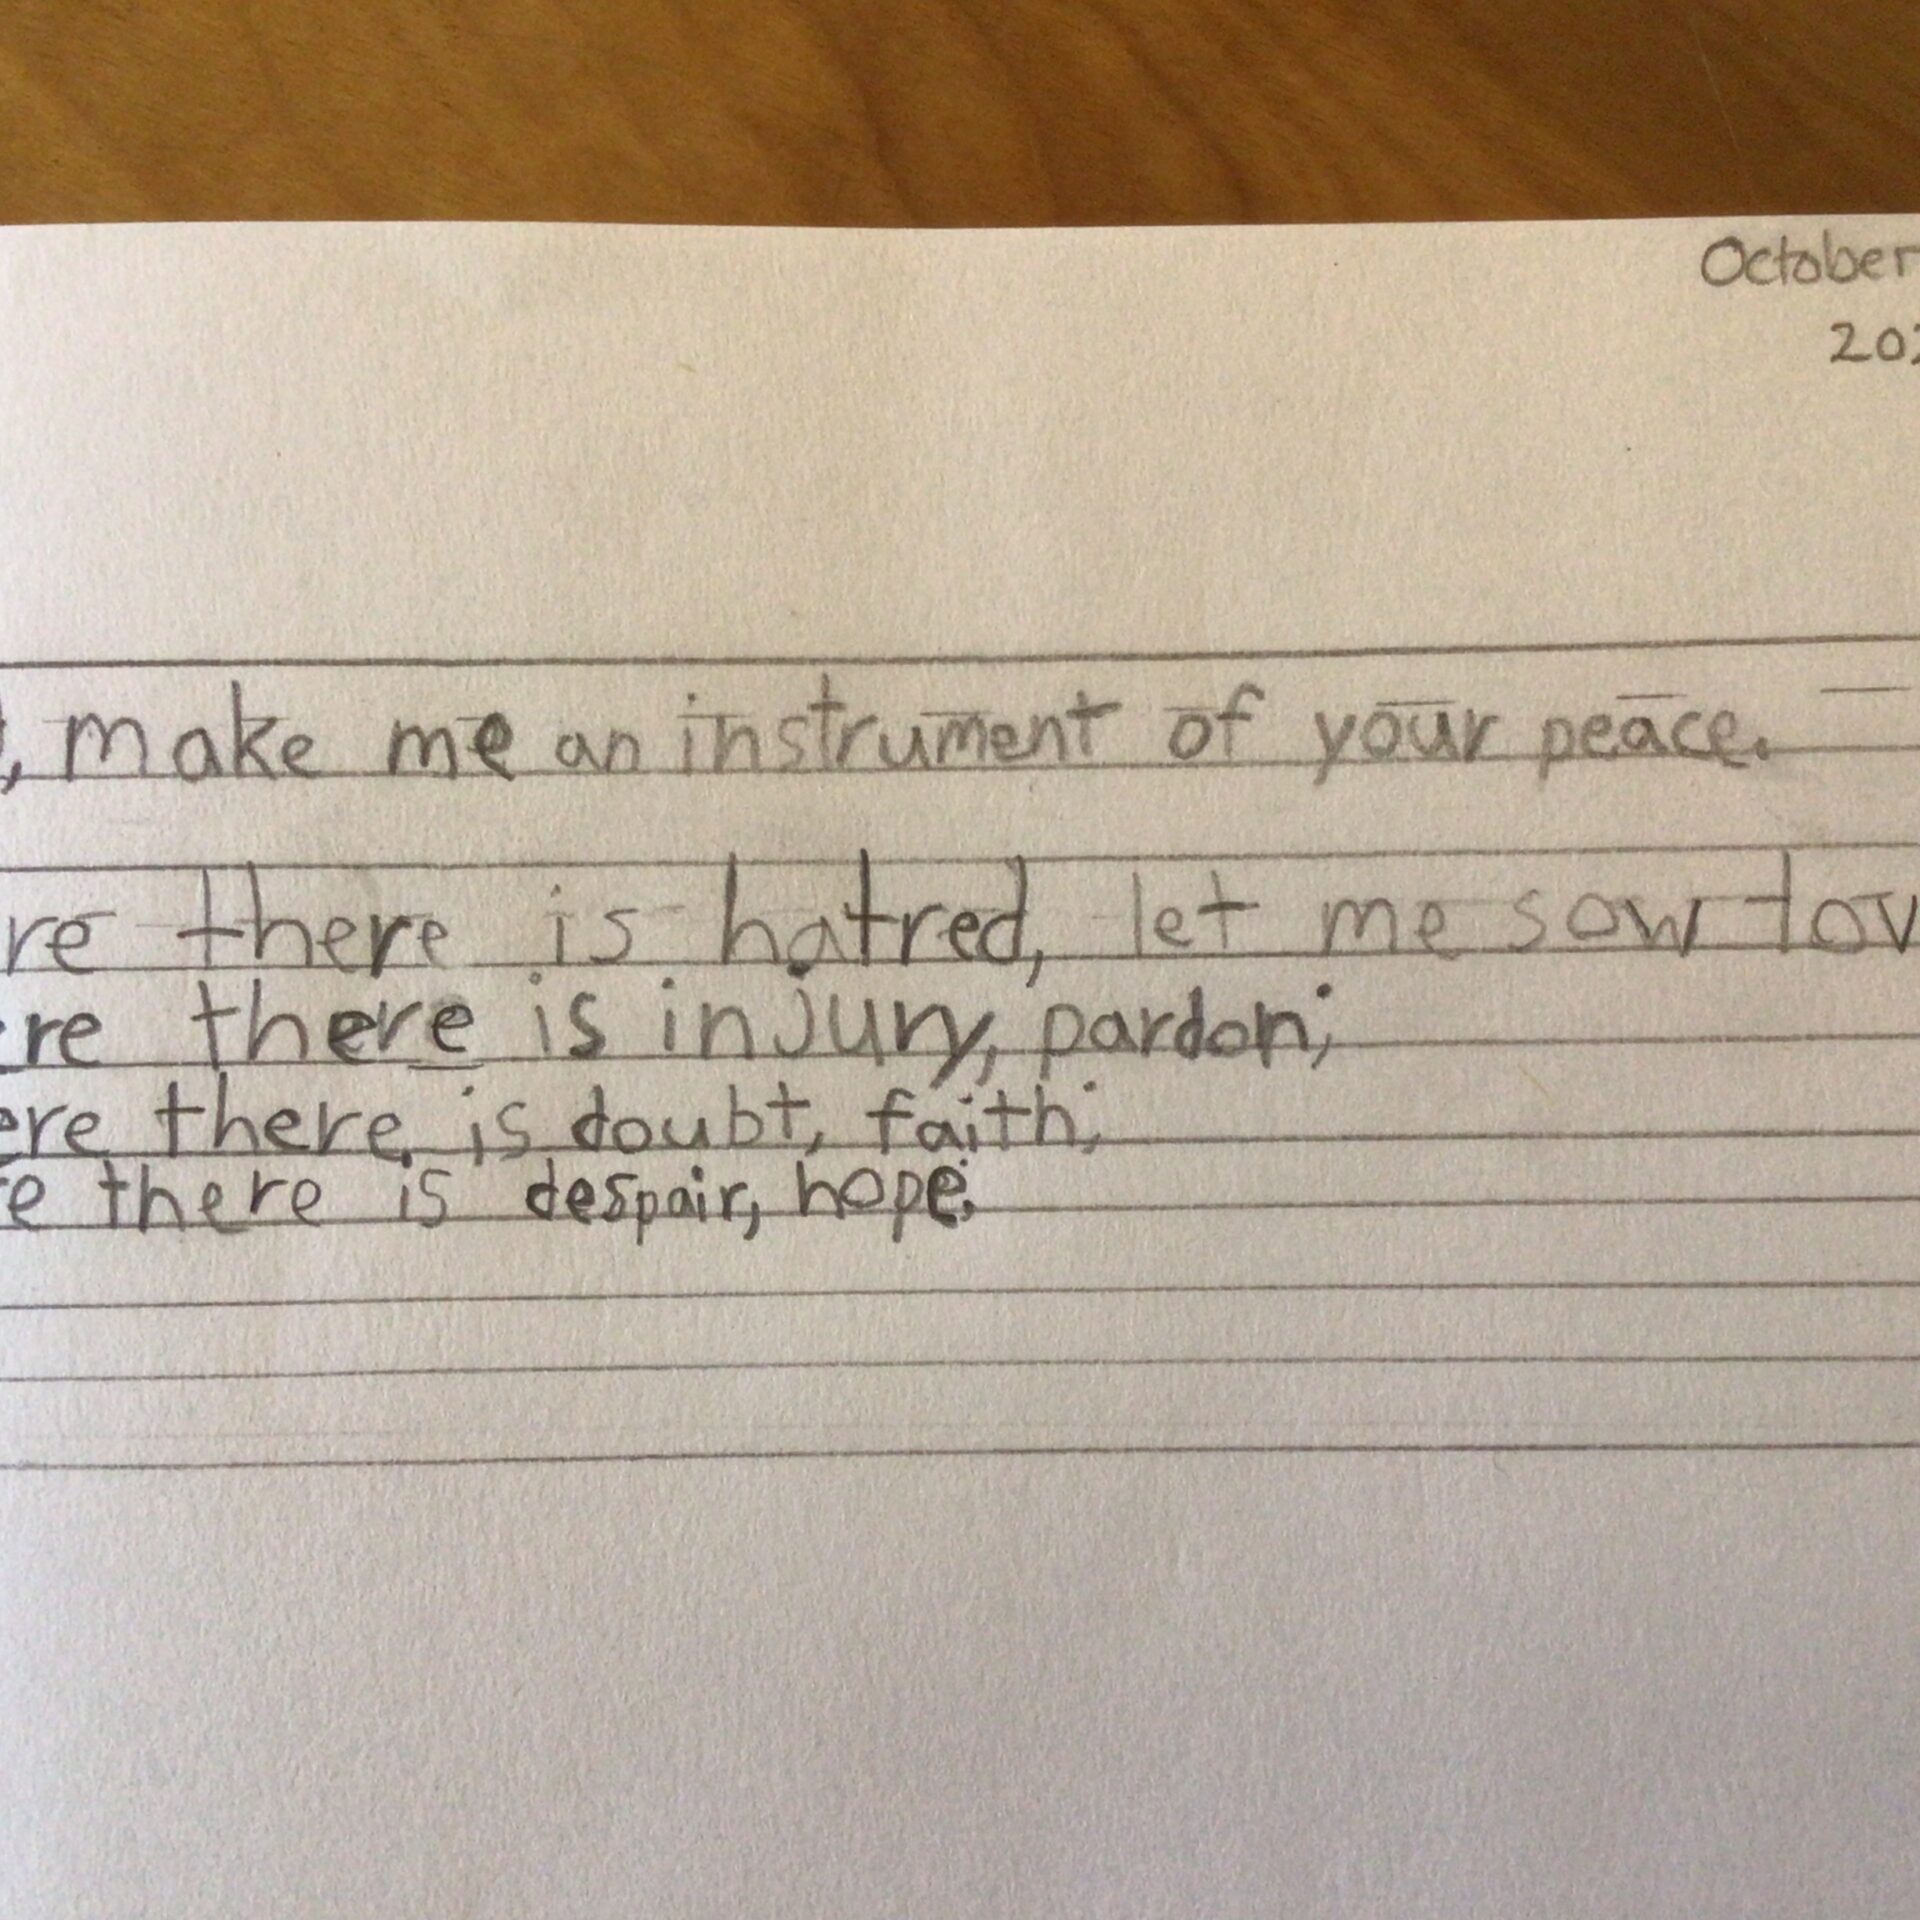 October
202
, make me an instrument of your peace.
re there is hatred, let me sow lov
ere there is injury, pardon;
ere there is doubt, faith;
e there is despair, hope;